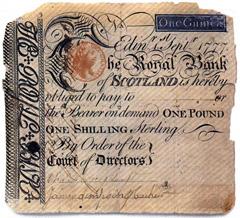 One Guinea
Edinr. 1st Sept. 1777
The Royal Bank
of SCOTLAND is hereby
obliged to pay to or
the Bearer on demand ONE POUND
ONE SHILLING Sterling
By Order of the
Court of Directors